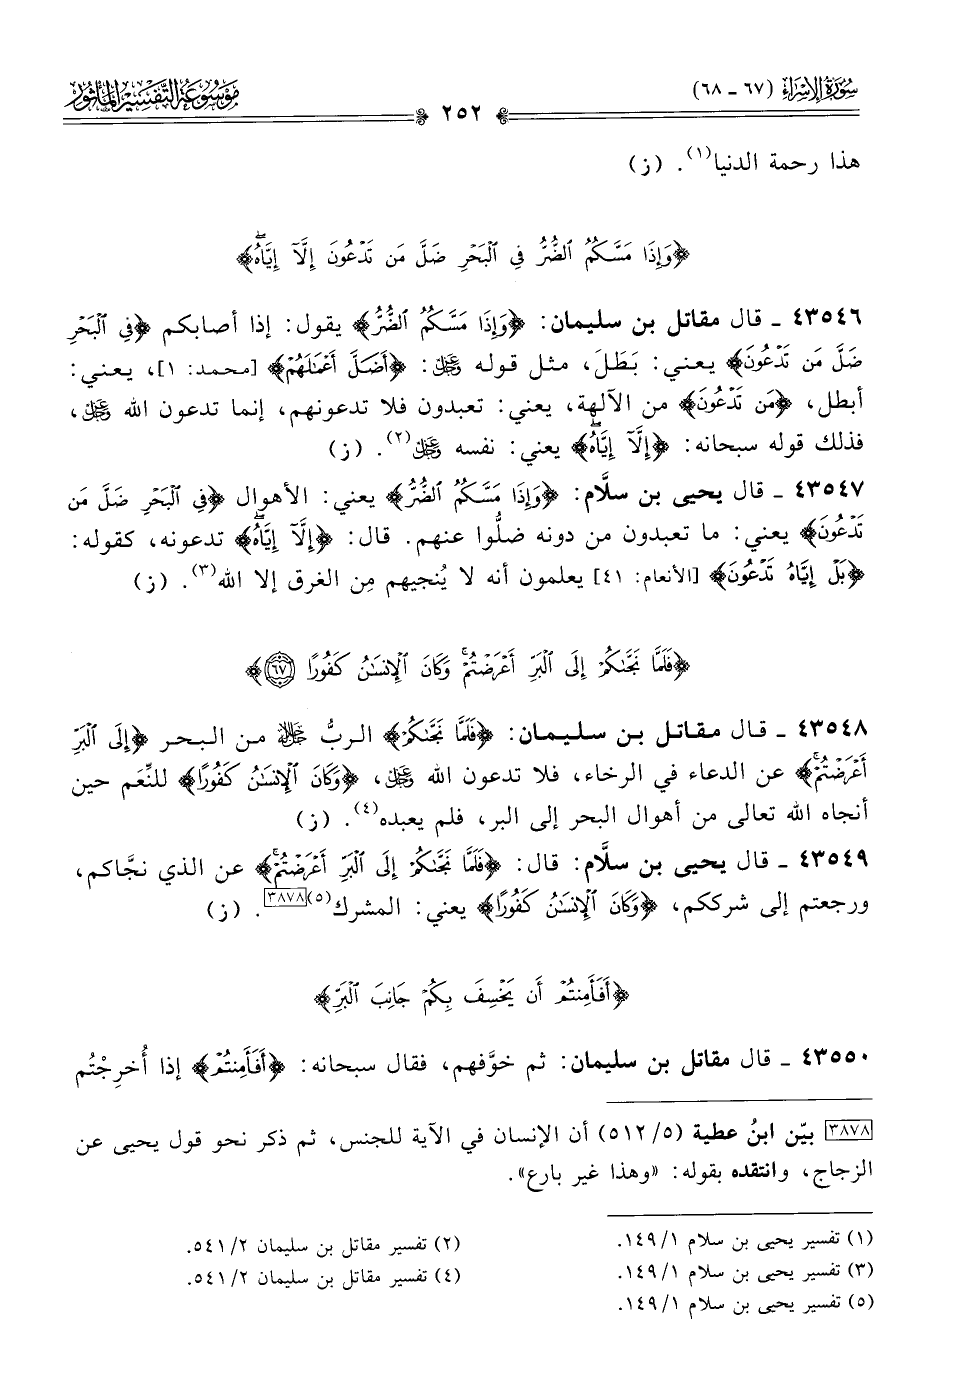 سُورَةُ الإِسْرَاءِ (٦٧ ـ ٦٨)
٢٥٢
مَوْسُوعَةُ التَّفْسِيرِ المَأْثُورِ
هذا رحمة الدنيا(١). (ز)
﴿وَإِذَا مَسَّكُمُ ٱلضُّرُّ فِي ٱلْبَحْرِ ضَلَّ مَن تَدْعُونَ إِلَّآ إِيَّاهُۖ﴾
٤٣٥٤٦ ـ قال مقاتل بن سليمان: ﴿وَإِذَا مَسَّكُمُ ٱلضُّرُّ﴾ يقول: إذا أصابكم ﴿فِي ٱلْبَحْرِ
ضَلَّ مَن تَدْعُونَ﴾ يعني: بَطَلَ، مثل قوله عز وجل: ﴿أَضَلَّ أَعْمَٰلَهُمْ﴾ [محمد: ١]، يعني:
أبطل، ﴿مَن تَدْعُونَ﴾ من الآلهة، يعني: تعبدون فلا تدعونهم، إنما تدعون الله عز وجل،
فذلك قوله سبحانه: ﴿إِلَّآ إِيَّاهُۖ﴾ يعني: نفسه عز وجل(٢). (ز)
٤٣٥٤٧ ـ قال يحيى بن سلَّام: ﴿وَإِذَا مَسَّكُمُ ٱلضُّرُّ﴾ يعني: الأهوال ﴿فِي ٱلْبَحْرِ ضَلَّ مَن
تَدْعُونَ﴾ يعني: ما تعبدون من دونه ضلُّوا عنهم. قال: ﴿إِلَّآ إِيَّاهُۖ﴾ تدعونه، كقوله:
﴿بَلْ إِيَّاهُ تَدْعُونَ﴾ [الأنعام: ٤١] يعلمون أنه لا يُنجيهم مِن الغرق إلا الله(٣). (ز)
﴿فَلَمَّا نَجَّىٰكُمْ إِلَى ٱلْبَرِّ أَعْرَضْتُمْۚ وَكَانَ ٱلْإِنسَٰنُ كَفُورًا ٦٧﴾
٤٣٥٤٨ ـ قال مقاتل بن سليمان: ﴿فَلَمَّا نَجَّىٰكُمْ﴾ الربُّ جل جلاله من البحر ﴿إِلَى ٱلْبَرِّ
أَعْرَضْتُمْۚ﴾ عن الدعاء في الرخاء، فلا تدعون الله عز وجل، ﴿وَكَانَ ٱلْإِنسَٰنُ كَفُورًا﴾ للنِّعَم حين
أنجاه الله تعالى من أهوال البحر إلى البر، فلم يعبده(٤). (ز)
٤٣٥٤٩ ـ قال يحيى بن سلَّام: قال: ﴿فَلَمَّا نَجَّىٰكُمْ إِلَى ٱلْبَرِّ أَعْرَضْتُمْۚ﴾ عن الذي نجَّاكم،
ورجعتم إلى شرككم، ﴿وَكَانَ ٱلْإِنسَٰنُ كَفُورًا﴾ يعني: المشرك(٥)[٣٨٧٨]. (ز)
﴿أَفَأَمِنتُمْ أَن يَخْسِفَ بِكُمْ جَانِبَ ٱلْبَرِّ﴾
٤٣٥٥٠ ـ قال مقاتل بن سليمان: ثم خوَّفهم، فقال سبحانه: ﴿أَفَأَمِنتُمْ﴾ إذا أُخرِجْتُم
[٣٨٧٨] بيّن ابنُ عطية (٥/ ٥١٢) أن الإنسان في الآية للجنس، ثم ذكر نحو قول يحيى عن
الزجاج، وانتقده بقوله: «وهذا غير بارع».
(١) تفسير يحيى بن سلام ١/ ١٤٩.
(٢) تفسير مقاتل بن سليمان ٢/ ٥٤١.
(٣) تفسير يحيى بن سلام ١/ ١٤٩.
(٤) تفسير مقاتل بن سليمان ٢/ ٥٤١.
(٥) تفسير يحيى بن سلام ١/ ١٤٩.